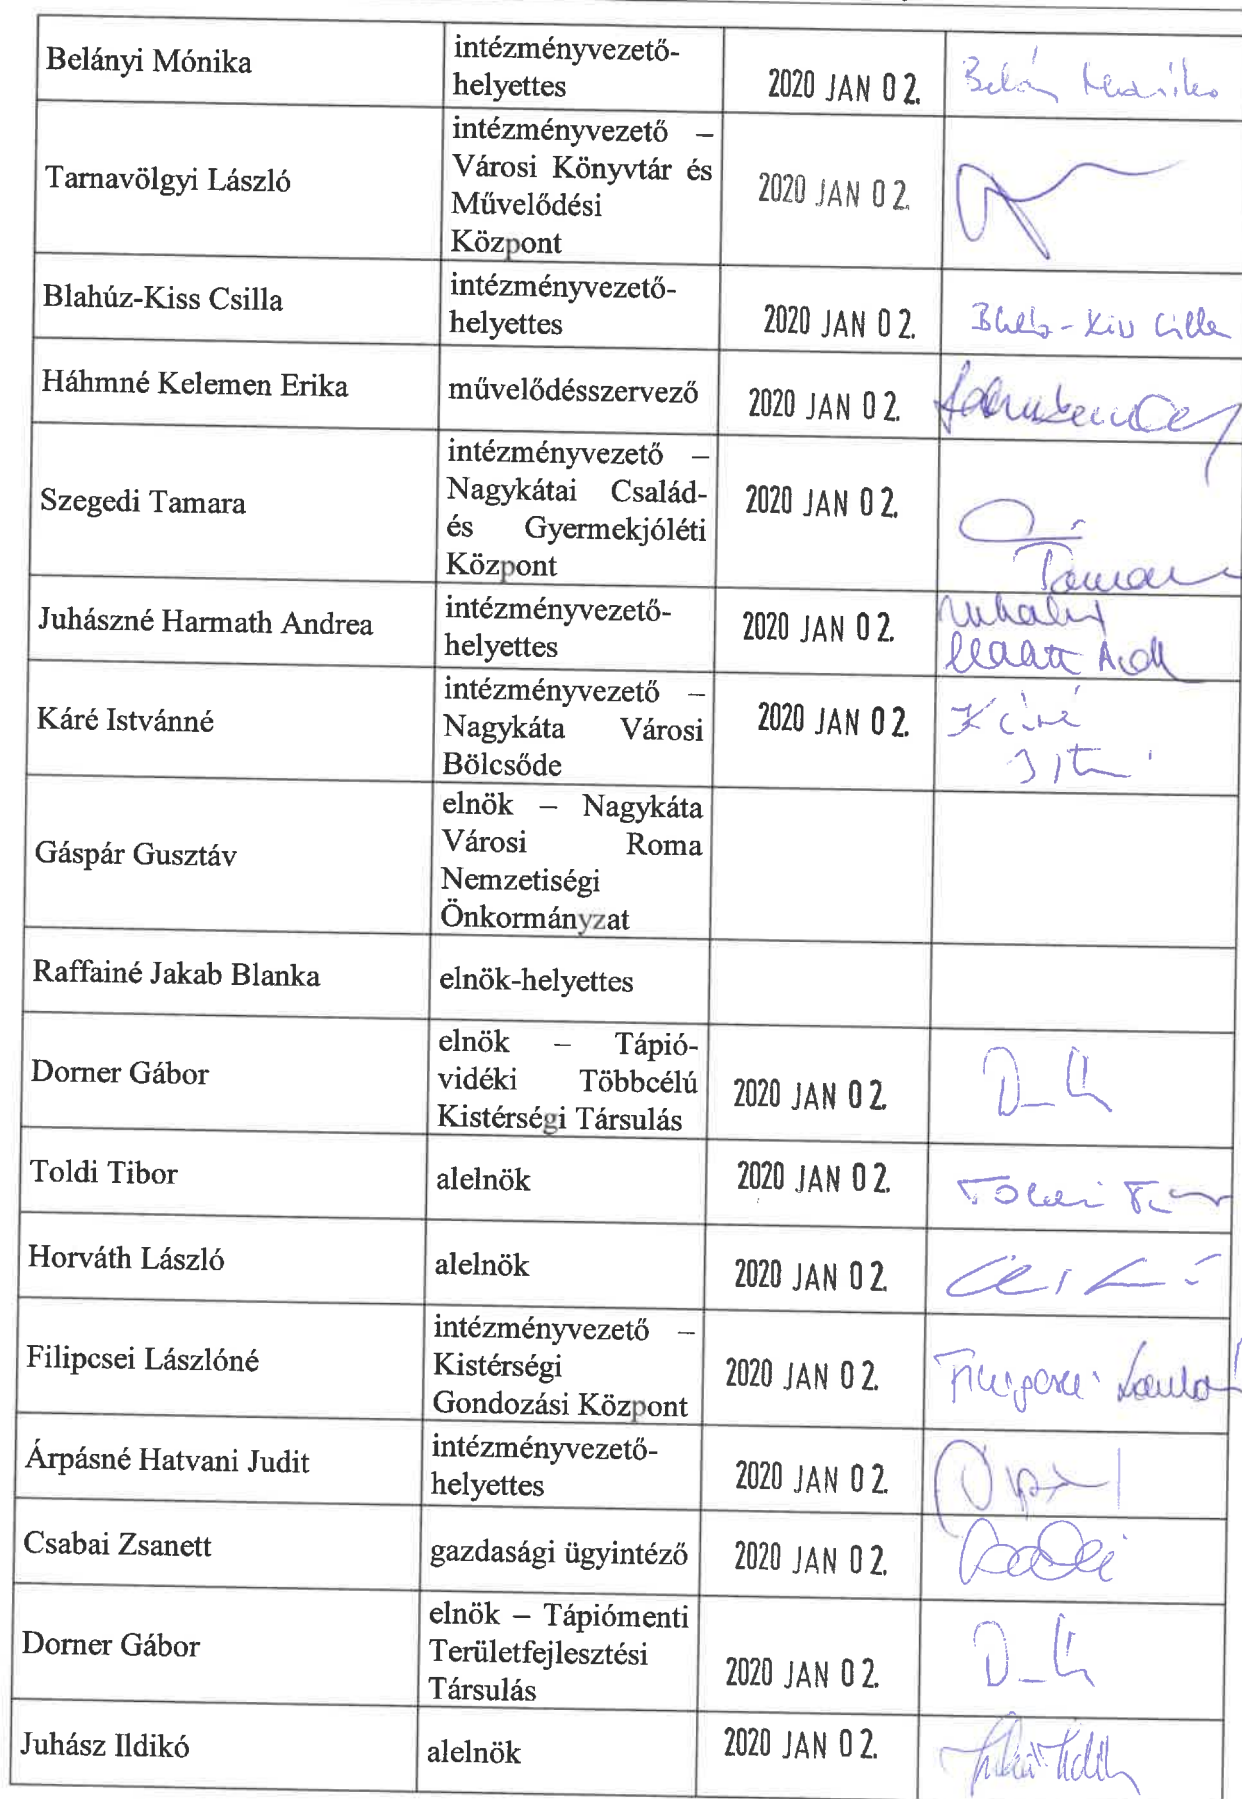 Belányi Mónika
intézményvezető-
helyettes
2020 JAN 02.
Tarnavölgyi László
intézményvezető –
Városi Könyvtár és
Művelődési
Központ
2020 JAN 02.
Blahúz-Kiss Csilla
intézményvezető-
helyettes
2020 JAN 02.
Háhmné Kelemen Erika
művelődésszervező
2020 JAN 02.
Szegedi Tamara
intézményvezető –
Nagykátai Család-
és Gyermekjóléti
Központ
2020 JAN 02.
Juhászné Harmath Andrea
intézményvezető-
helyettes
2020 JAN 02.
Káré Istvánné
intézményvezető –
Nagykáta Városi
Bölcsőde
2020 JAN 02.
Káré
Gáspár Gusztáv
elnök – Nagykáta
Városi Roma
Nemzetiségi
Önkormányzat
Raffainé Jakab Blanka
elnök-helyettes
Dorner Gábor
elnök – Tápió-
vidéki Többcélú
Kistérségi Társulás
2020 JAN 02.
Toldi Tibor
alelnök
2020 JAN 02.
Horváth László
alelnök
2020 JAN 02.
Filipcsei Lászlóné
intézményvezető –
Kistérségi
Gondozási Központ
2020 JAN 02.
Árpásné Hatvani Judit
intézményvezető-
helyettes
2020 JAN 02.
Csabai Zsanett
gazdasági ügyintéző
2020 JAN 02.
Dorner Gábor
elnök – Tápiómenti
Területfejlesztési
Társulás
2020 JAN 02.
Juhász Ildikó
alelnök
2020 JAN 02.